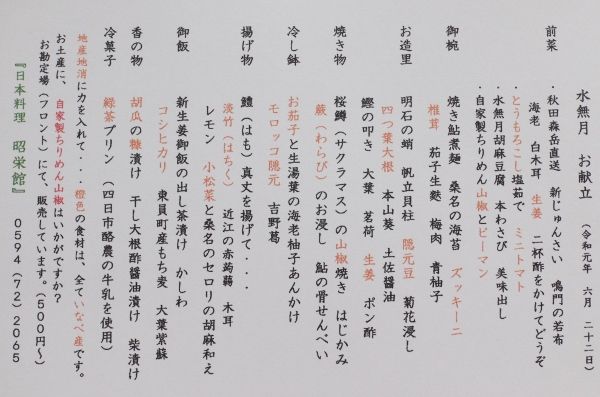 水無月　お献立　（令和元年　六月　二十二日）
前菜　・秋田森岳直送　新じゅんさい　鳴門の若布
海老　白木耳　生姜　二杯酢をかけてどうぞ
・とうもろこし塩茹で　ミニトマト
・水無月胡麻豆腐　本わさび　美味出し
・自家製ちりめん山椒とピーマン
御椀　焼き鮎煮麺　桑名の海苔　ズッキーニ
椎茸　茄子生麩　梅肉　青柚子
お造里　明石の蛸　帆立貝柱　隠元豆　菊花浸し
四つ葉大根　本山葵　土佐醤油
鰹の叩き　大葉　茗荷　生姜　ポン酢
焼き物　桜鱒（サクラマス）の山椒焼き　はじかみ
蕨（わらび）のお浸し　鮎の骨せんべい
冷し鉢　お茄子と生湯葉の海老柚子あんかけ
モロッコ隠元　吉野葛
揚げ物　鱧（はも）真丈を揚げて・・・
淡竹（はちく）　近江の赤蒟蒻　木耳
レモン　小松菜と桑名のセロリの胡麻和え
御飯　新生姜御飯の出し茶漬け　かしわ
コシヒカリ　東員町産もち麦　大葉紫蘇
香の物　胡瓜の糠漬け　干し大根酢醤油漬け　柴漬け
冷菓子　緑茶プリン　（四日市酪農の牛乳を使用）
地産地消に力を入れて・・・橙色の食材は、全ていなべ産です。
お土産に、自家製ちりめん山椒はいかがですか？
お勘定場（フロント）にて、販売しています。（500円～）
『日本料理　昭栄館』　0594（72）2065